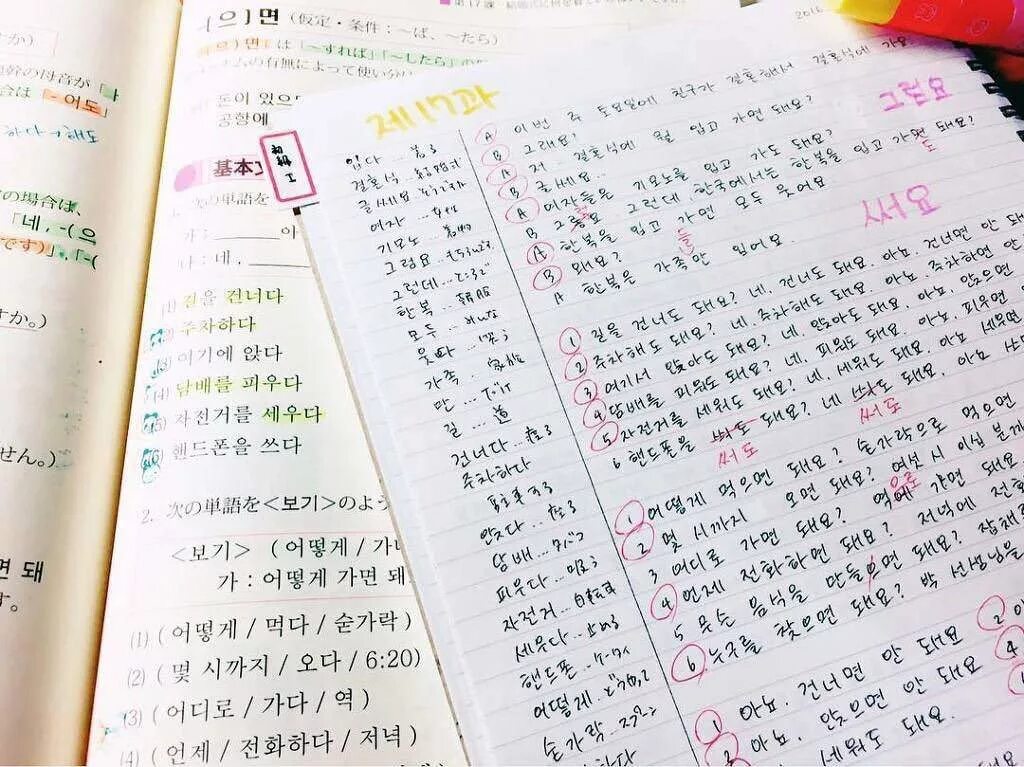 第17課
-(으)면 (仮定・条件：〜ば、〜たら)
(으)면」は「〜すれば」「〜したら」の
の有無によって使い分
돈이 있으면
공항에
基本文
次の単語を
가 : 아
나 : 네,
(1) 길을 건너다
(2) 주차하다
(3) 여기에 앉다
(4) 담배를 피우다
(5) 자전거를 세우다
(6) 핸드폰을 쓰다
2. 次の単語を<보기>のよう
<보기> (어떻게 / 가
가 : 어떻게 가면 돼
(1) (어떻게 / 먹다 / 숟가락)
(2) (몇 시까지 / 오다 / 6:20)
(3) (어디로 / 가다 / 역)
(4) (언제 / 전화하다 / 저녁)
か)
幹の母音が「
合は「-어도」
하다→해도
の場合は、
「네, -(으
です)」・「-(
か。)
せん。)
면 돼
す。
初級 I
제17과
입다 … 着る
결혼식 … 結婚式
글쎄요
여자 … 女性
기모노 … 着物
그럼요
그런데 … ところで
한복 … 韓服
모두 … みんな
웃다 … 笑う
가족 … 家族
만 … だけ
길 … 道
건너다 … 渡る
주차하다
駐車する
앉다 … 座る
담배 … タバコ
피우다 … 吸う
자전거 … 自転車
세우다 … 止める
핸드폰 … ケータイ
어떻게 … どうやって
숟가락 … スプーン
2016
A 이번 주 토요일에 친구가 결혼해서 결혼식에 가요.
B 그래요?
A 저.. 결혼식에 뭘 입고 가면 돼요?
B 글쎄요.
A 여자들은 기모노를 입고 가도 돼요?
B 그럼요. 그런데, 한국에서는 한복을 입고 가면 돼요?
도
A 한복을 입고 가면 모두 웃어요
B 왜요?
A 한복은 가족만 입어요.
들
그럼요
써요
1 길을 건너도 돼요? 네. 건너도 돼요. 아뇨. 건너면 안 돼
2 주차해도 돼요? 네. 주차해도 돼요. 아뇨. 주차하면 안
3 여기서 앉아도 돼요? 네. 앉아도 돼요. 아뇨. 앉으면
4 담배를 피워도 돼요? 네. 피워도 돼요. 아뇨. 피우면
5 자전거를 세워도 돼요? 네. 세워도 돼요. 아뇨 세우면
6 핸드폰을 돼요? 네 도 돼요. 아뇨
써도 써도
1 어떻게 먹으면 돼요? 숟가락으로 먹으면
2 몇 시까지 오면 돼요? 여섯 시 이십 분까
3 어디로 가면 돼요? 역에 가면 돼요.
으로
4 언제 전화하면 돼요? 저녁에 전화
5 무슨 음식을 만들면 돼요? 잡채를
6 누구를 찾으면 돼요? 박 선생님을
1 아뇨. 건너면 안 돼요
2 아
3 아뇨. 앉으면 안 돼요
4
세워도 돼요.